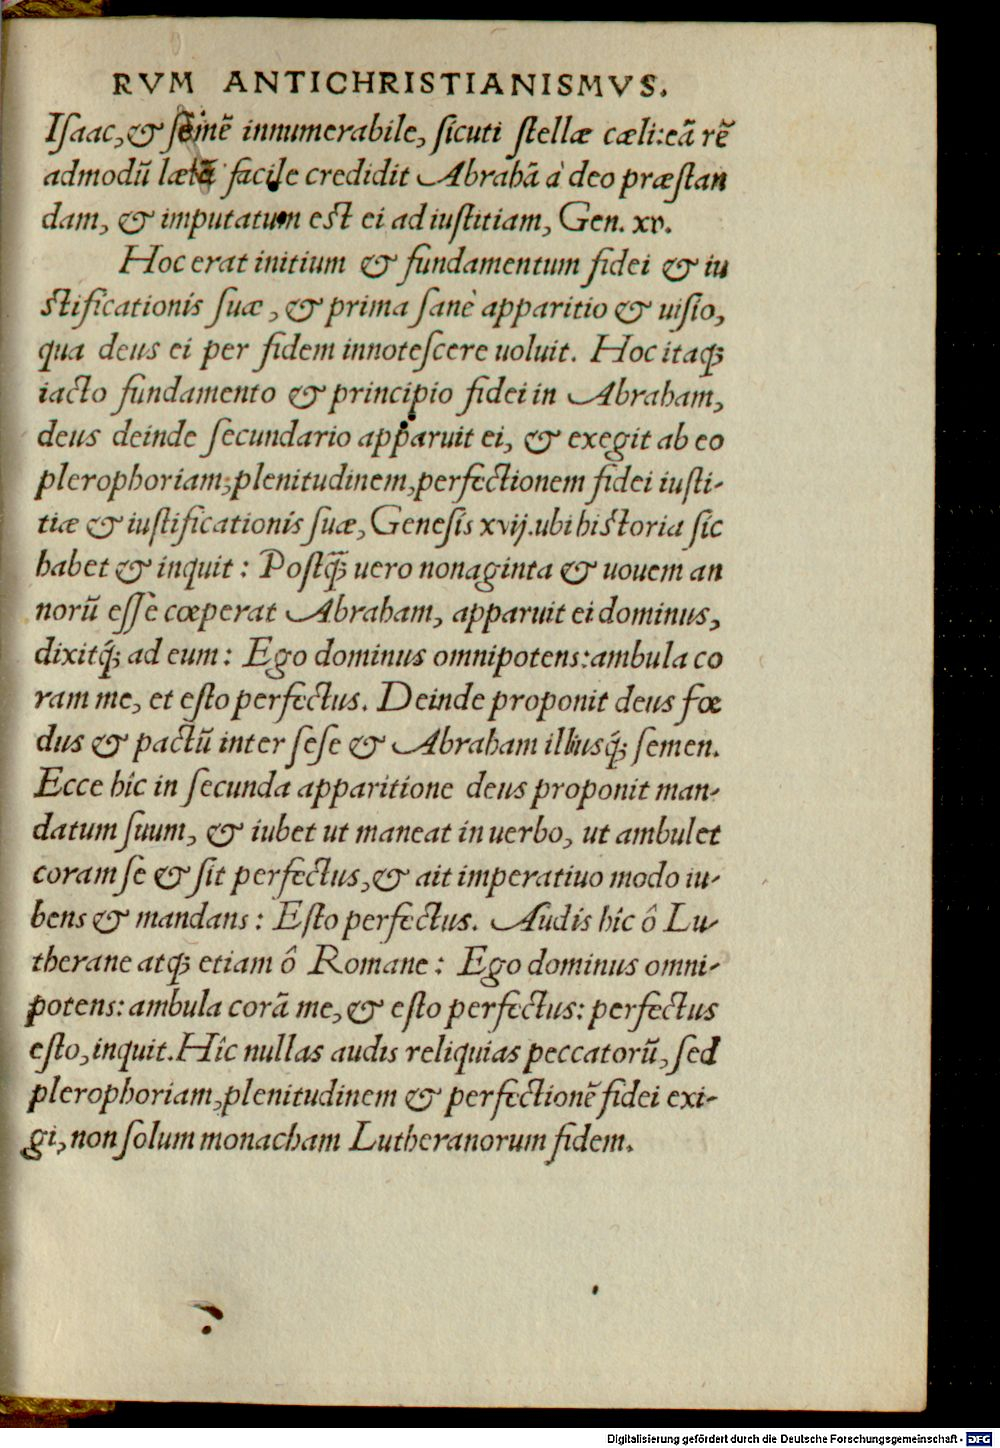 RVM ANTICHRISTIANISMVS.
Iſaac, & ſemē innumerabile, ſicuti ſtellæ cæli: eā rē
admodū lætā facile credidit Abrahā à deo præſtan
dam, & imputatum eſt ei ad iuſtitiam, Gen. xv.
Hoc erat initium & fundamentum fidei & iu
ſtificationis ſuæ, & prima ſanè apparitio & uiſio,
qua deus ei per fidem innoteſcere uoluit. Hoc itaq;
iacto fundamento & principio fidei in Abraham,
deus deinde ſecundario apparuit ei, & exegit ab eo
plerophoriam, plenitudinem, perfectionem fidei iuſti-
tiæ & iuſtificationis ſuæ, Geneſis xvij. ubi hiſtoria ſic
habet & inquit: Poſtq̃; uero nonaginta & uouem an
norū eſſe cœperat Abraham, apparuit ei dominus,
dixitq́; ad eum: Ego dominus omnipotens: ambula co
ram me, et eſto perfectus. Deinde proponit deus fœ
dus & pactū inter ſeſe & Abraham illiusq́; ſemen.
Ecce hîc in ſecunda apparitione deus proponit man-
datum ſuum, & iubet ut maneat in uerbo, ut ambulet
coram ſe & ſit perfectus, & ait imperatiuo modo iu-
bens & mandans: Eſto perfectus. Audis hîc ô Lu-
therane atq; etiam ô Romane: Ego dominus omni-
potens: ambula corā me, & eſto perfectus: perfectus
eſto, inquit. Hîc nullas audis reliquias peccatorū, ſed
plerophoriam, plenitudinem & perfectionē fidei exi-
gi, non ſolum monacham Lutheranorum fidem.
Digitalisierung gefördert durch die Deutsche Forschungsgemeinschaft - DFG